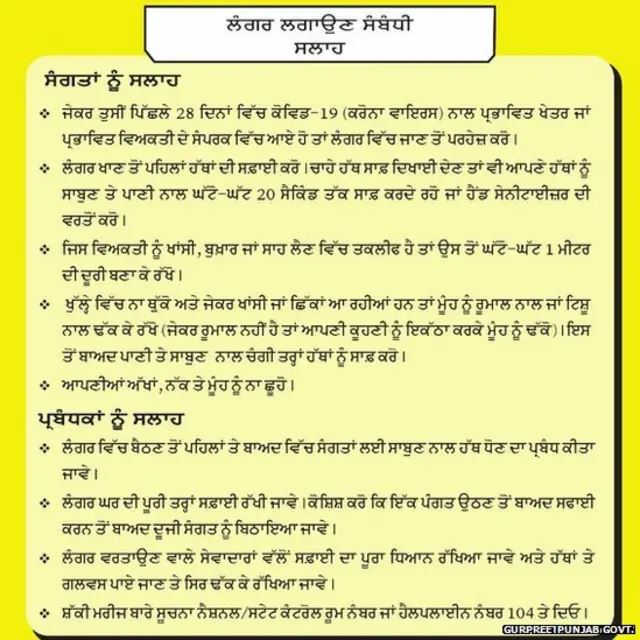 ਲੰਗਰ ਲਗਾਉਣ ਸੰਬੰਧੀ
ਸਲਾਹ
ਸੰਗਤਾਂ ਨੂੰ ਸਲਾਹ
❖ ਜੇਕਰ ਤੁਸੀਂ ਪਿੱਛਲੇ 28 ਦਿਨਾਂ ਵਿੱਚ ਕੋਵਿਡ-19 (ਕਰੋਨਾ ਵਾਇਰਸ) ਨਾਲ ਪ੍ਰਭਾਵਿਤ ਖੇਤਰ ਜਾਂ
ਪ੍ਰਭਾਵਿਤ ਵਿਅਕਤੀ ਦੇ ਸੰਪਰਕ ਵਿੱਚ ਆਏ ਹੋ ਤਾਂ ਲੰਗਰ ਵਿੱਚ ਜਾਣ ਤੋਂ ਪਰਹੇਜ਼ ਕਰੋ।
❖ ਲੰਗਰ ਖਾਣ ਤੋਂ ਪਹਿਲਾਂ ਹੱਥਾਂ ਦੀ ਸਫ਼ਾਈ ਕਰੋ। ਚਾਹੇ ਹੱਥ ਸਾਫ਼ ਦਿਖਾਈ ਦੇਣ ਤਾਂ ਵੀ ਆਪਣੇ ਹੱਥਾਂ ਨੂੰ
ਸਾਬੁਣ ਤੇ ਪਾਣੀ ਨਾਲ ਘੱਟੋ-ਘੱਟ 20 ਸੈਕਿੰਡ ਤੱਕ ਸਾਫ਼ ਕਰਦੇ ਰਹੋ ਜਾਂ ਹੈਂਡ ਸੇਨੀਟਾਈਜ਼ਰ ਦੀ
ਵਰਤੋਂ ਕਰੋ।
❖ ਜਿਸ ਵਿਅਕਤੀ ਨੂੰ ਖਾਂਸੀ, ਬੁਖ਼ਾਰ ਜਾਂ ਸਾਹ ਲੈਣ ਵਿੱਚ ਤਕਲੀਫ ਹੈ ਤਾਂ ਉਸ ਤੋਂ ਘੱਟੋ-ਘੱਟ 1 ਮੀਟਰ
ਦੀ ਦੂਰੀ ਬਣਾ ਕੇ ਰੱਖੋ।
❖ ਖੁੱਲ੍ਹੇ ਵਿੱਚ ਨਾ ਥੁੱਕੋ ਅਤੇ ਜੇਕਰ ਖਾਂਸੀ ਜਾਂ ਛਿੱਕਾਂ ਆ ਰਹੀਆਂ ਹਨ ਤਾਂ ਮੂੰਹ ਨੂੰ ਰੂਮਾਲ ਨਾਲ ਜਾਂ ਟਿਸ਼ੂ
ਨਾਲ ਢੱਕ ਕੇ ਰੱਖੋ (ਜੇਕਰ ਰੂਮਾਲ ਨਹੀਂ ਹੈ ਤਾਂ ਆਪਣੀ ਕੂਹਣੀ ਨੂੰ ਇਕੱਠਾ ਕਰਕੇ ਮੂੰਹ ਨੂੰ ਢੱਕੋ)। ਇਸ
ਤੋਂ ਬਾਅਦ ਪਾਣੀ ਤੇ ਸਾਬੁਣ ਨਾਲ ਚੰਗੀ ਤਰ੍ਹਾਂ ਹੱਥਾਂ ਨੂੰ ਸਾਫ਼ ਕਰੋ।
❖ ਆਪਣੀਆਂ ਅੱਖਾਂ, ਨੱਕ ਤੇ ਮੂੰਹ ਨੂੰ ਨਾ ਛੂਹੋ।
ਪ੍ਰਬੰਧਕਾਂ ਨੂੰ ਸਲਾਹ
❖ ਲੰਗਰ ਵਿੱਚ ਬੈਠਣ ਤੋਂ ਪਹਿਲਾਂ ਤੇ ਬਾਅਦ ਵਿੱਚ ਸੰਗਤਾਂ ਲਈ ਸਾਬੁਣ ਨਾਲ ਹੱਥ ਧੋਣ ਦਾ ਪ੍ਰਬੰਧ ਕੀਤਾ
ਜਾਵੇ।
❖ ਲੰਗਰ ਘਰ ਦੀ ਪੂਰੀ ਤਰ੍ਹਾਂ ਸਫ਼ਾਈ ਰੱਖੀ ਜਾਵੇ। ਕੋਸ਼ਿਸ਼ ਕਰੋ ਕਿ ਇੱਕ ਪੰਗਤ ਉਠਣ ਤੋਂ ਬਾਅਦ ਸਫਾਈ
ਕਰਨ ਤੋਂ ਬਾਅਦ ਦੂਜੀ ਸੰਗਤ ਨੂੰ ਬਿਠਾਇਆ ਜਾਵੇ।
❖ ਲੰਗਰ ਵਰਤਾਉਣ ਵਾਲੇ ਸੇਵਾਦਾਰਾਂ ਵੱਲੋਂ ਸਫ਼ਾਈ ਦਾ ਪੂਰਾ ਧਿਆਨ ਰੱਖਿਆ ਜਾਵੇ ਅਤੇ ਹੱਥਾਂ ਤੇ
ਗਲਵਸ ਪਾਏ ਜਾਣ ਤੇ ਸਿਰ ਢੱਕ ਕੇ ਰੱਖਿਆ ਜਾਵੇ।
❖ ਸ਼ੱਕੀ ਮਰੀਜ ਬਾਰੇ ਸੂਚਨਾ ਨੈਸ਼ਨਲ/ਸਟੇਟ ਕੰਟਰੋਲ ਰੂਮ ਨੰਬਰ ਜਾਂ ਹੈਲਪਲਾਈਨ ਨੰਬਰ 104 ਤੇ ਦਿਓ।
GURPREETPUNJAB GOVT.